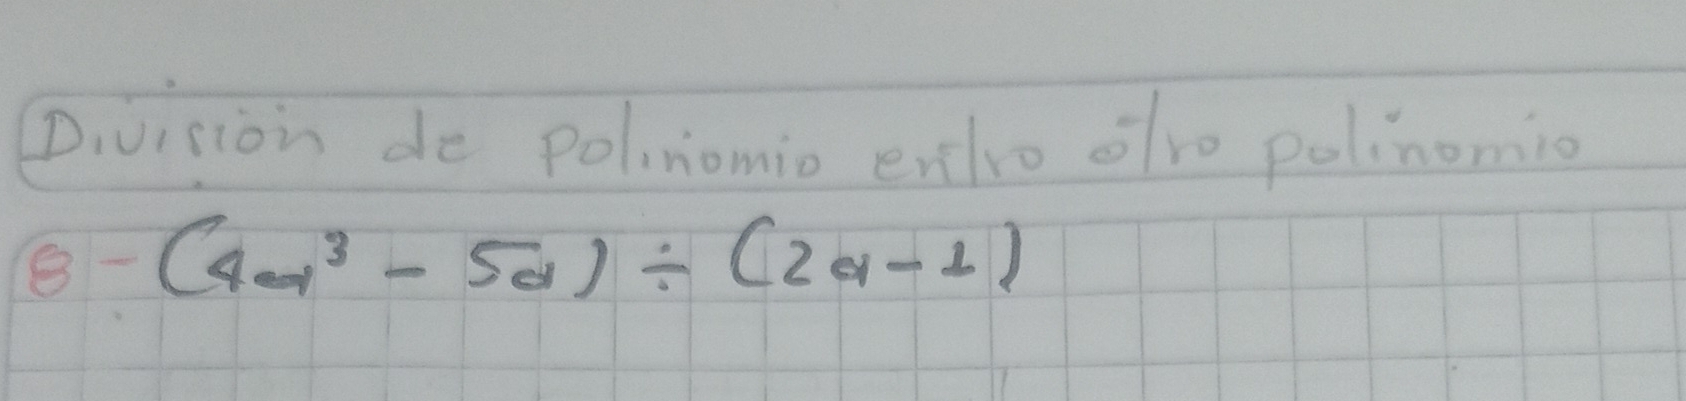 División de polinomio entro otro polinomio
8- (4a³ - 5a) ÷ (2a - 1)